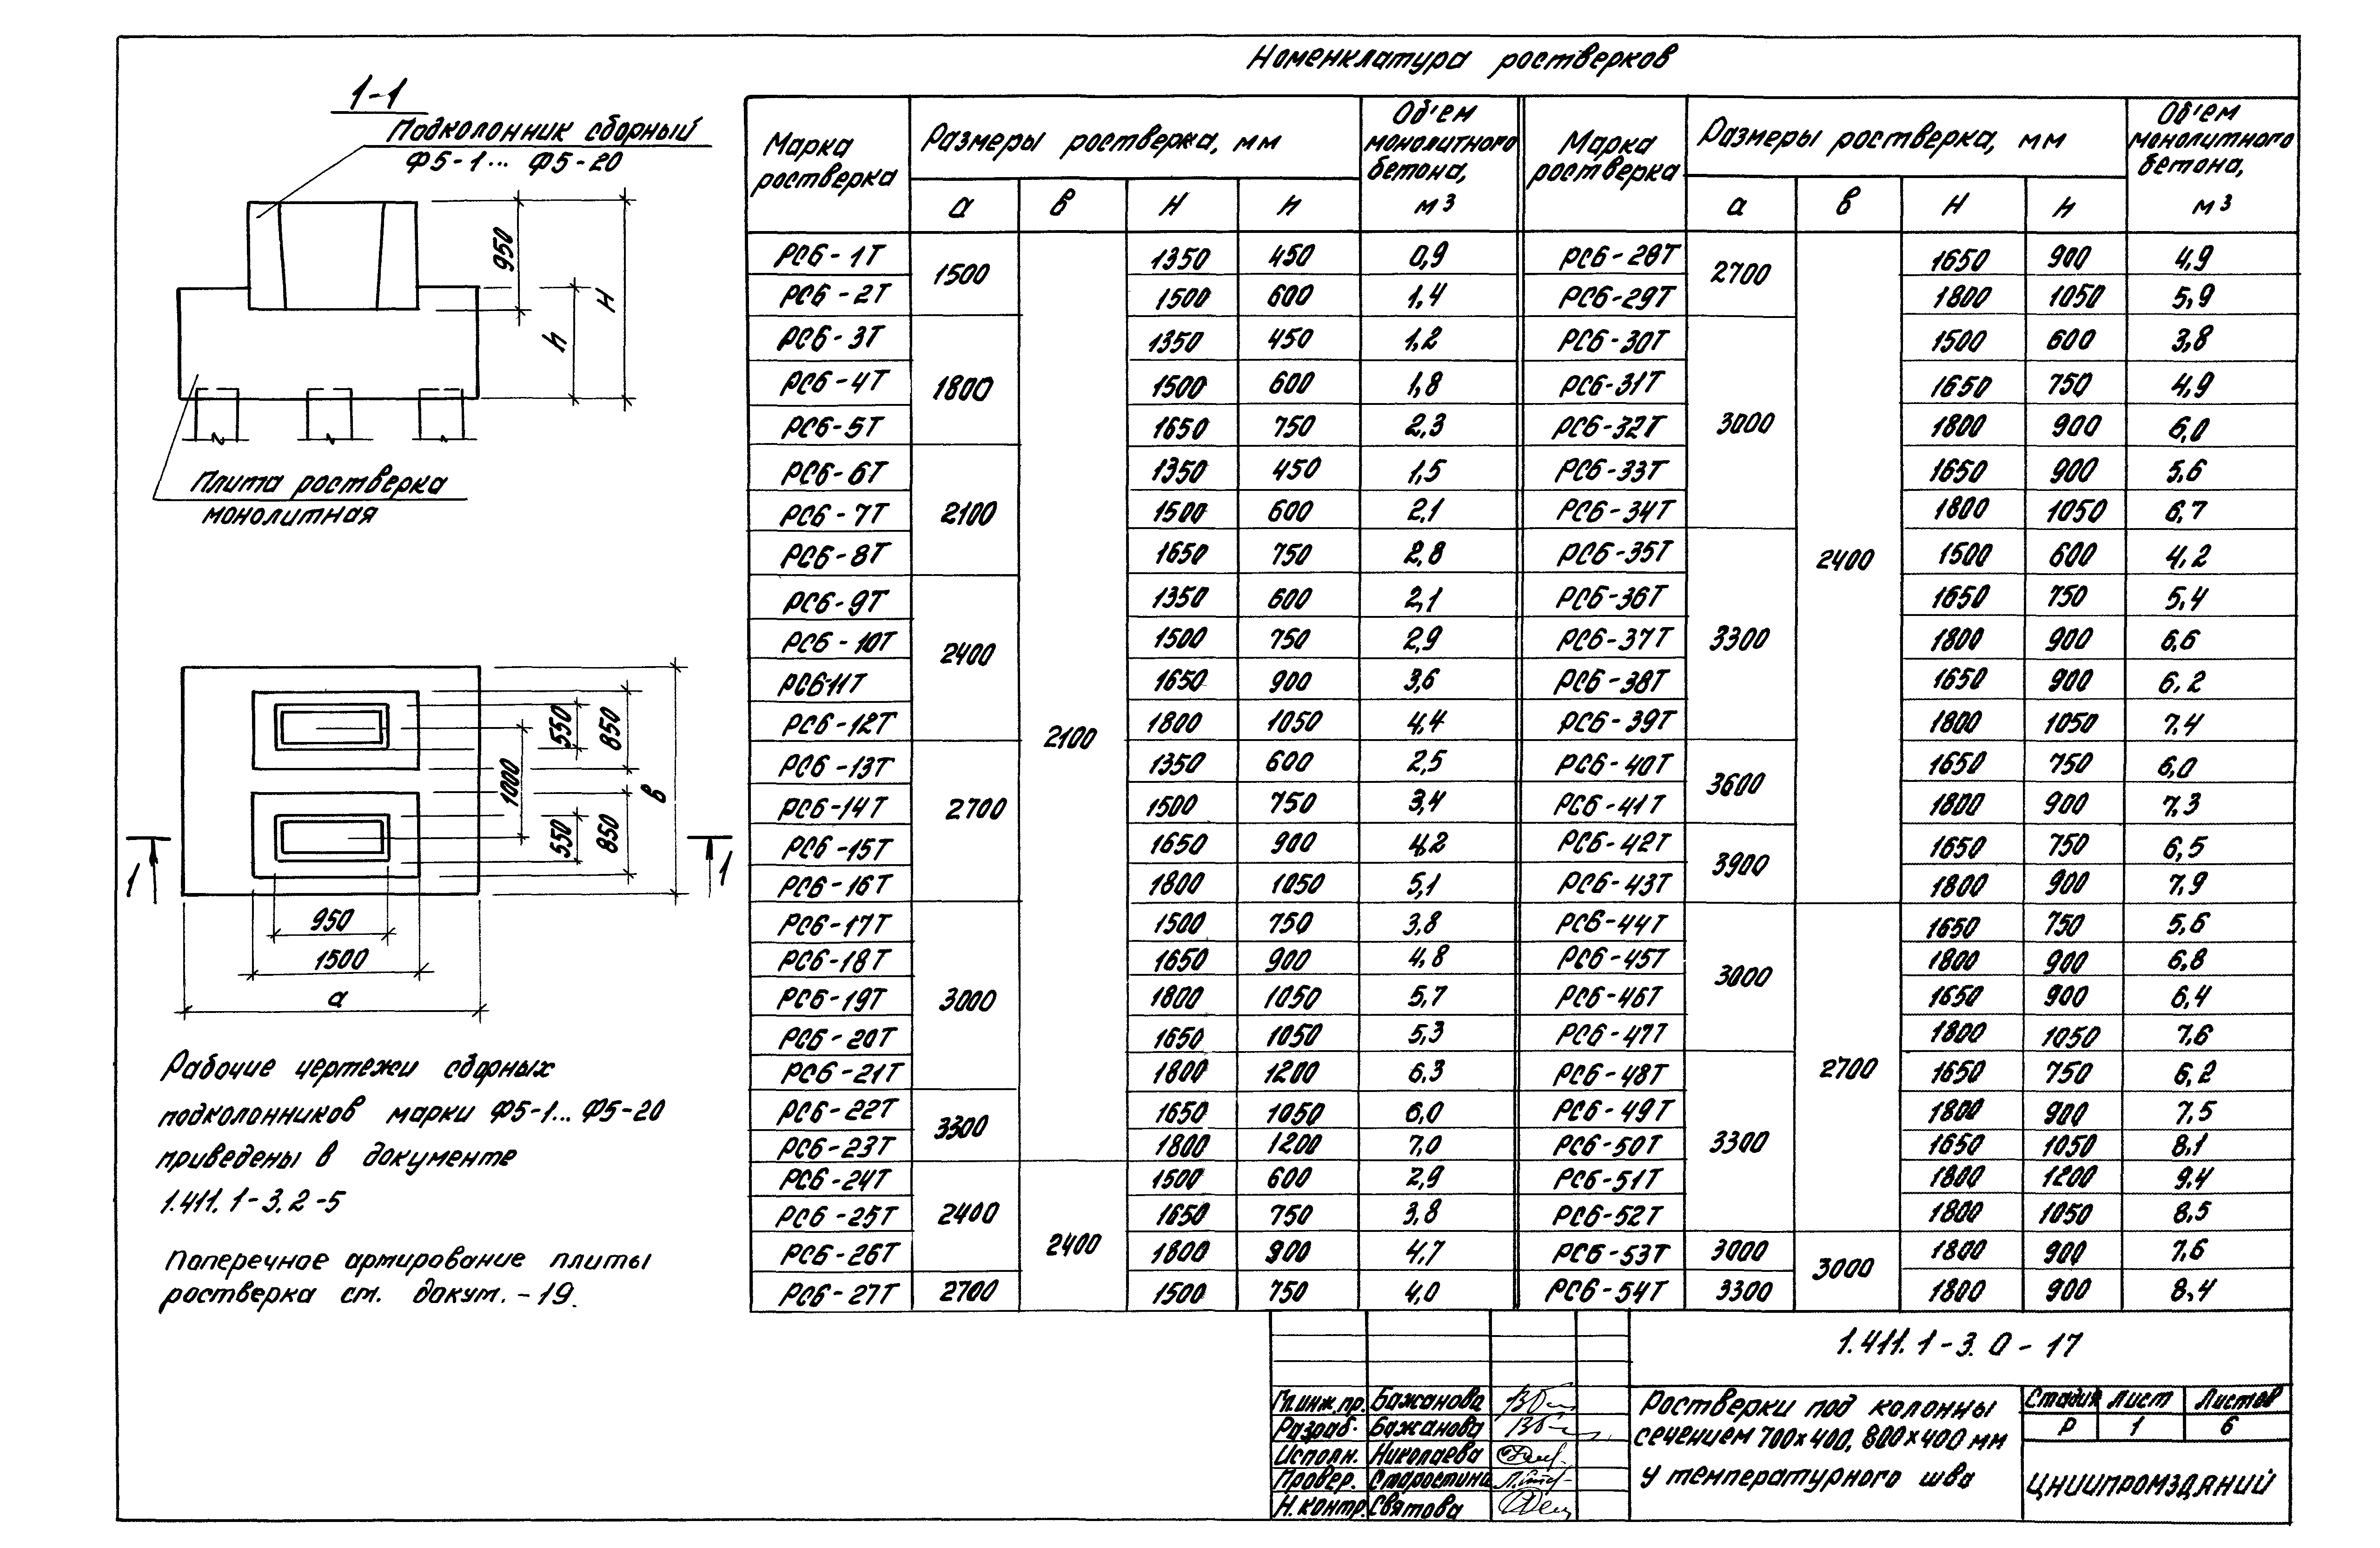 Номенклатура ростверков
1-1
Подколонник сборный
Ф5-1... Ф5-20
950
H
h
Плита ростверка
монолитная
550
850
1000
в
550
850
1
1
950
1500
а
Рабочие чертежи сборных
подколонников марки Ф5-1... Ф5-20
приведены в документе
1.411.1-3.2-5
Поперечное армирование плиты
ростверка см. докум. -19.
Марка ростверка | Размеры ростверка, мм | Об'ем монолитного бетона, м3 | Марка ростверка | Размеры ростверка, мм | Об'ем монолитного бетона, м3
а | в | H | h | а | в | H | h
РС6-1Т | 1500 | 2100 | 1350 | 450 | 0,9 | РС6-28Т | 2700 | 2400 | 1650 | 900 | 4,9
РС6-2Т | 1500 | 600 | 1,4 | РС6-29Т | 1800 | 1050 | 5,9
РС6-3Т | 1800 | 1350 | 450 | 1,2 | РС6-30Т | 3000 | 1500 | 600 | 3,8
РС6-4Т | 1500 | 600 | 1,8 | РС6-31Т | 1650 | 750 | 4,9
РС6-5Т | 1650 | 750 | 2,3 | РС6-32Т | 1800 | 900 | 6,0
РС6-6Т | 2100 | 1350 | 450 | 1,5 | РС6-33Т | 1650 | 900 | 5,6
РС6-7Т | 1500 | 600 | 2,1 | РС6-34Т | 1800 | 1050 | 6,7
РС6-8Т | 1650 | 750 | 2,8 | РС6-35Т | 3300 | 1500 | 600 | 4,2
РС6-9Т | 2400 | 1350 | 600 | 2,1 | РС6-36Т | 1650 | 750 | 5,4
РС6-10Т | 1500 | 750 | 2,9 | РС6-37Т | 1800 | 900 | 6,6
РС6-11Т | 1650 | 900 | 3,6 | РС6-38Т | 1650 | 900 | 6,2
РС6-12Т | 1800 | 1050 | 4,4 | РС6-39Т | 1800 | 1050 | 7,4
РС6-13Т | 2700 | 1350 | 600 | 2,5 | РС6-40Т | 3600 | 1650 | 750 | 6,0
РС6-14Т | 1500 | 750 | 3,4 | РС6-41Т | 1800 | 900 | 7,3
РС6-15Т | 1650 | 900 | 4,2 | РС6-42Т | 3900 | 1650 | 750 | 6,5
РС6-16Т | 1800 | 1050 | 5,1 | РС6-43Т | 1800 | 900 | 7,9
РС6-17Т | 3000 | 1500 | 750 | 3,8 | РС6-44Т | 3000 | 2700 | 1650 | 750 | 5,6
РС6-18Т | 1650 | 900 | 4,8 | РС6-45Т | 1800 | 900 | 6,8
РС6-19Т | 1800 | 1050 | 5,7 | РС6-46Т | 1650 | 900 | 6,4
РС6-20Т | 1650 | 1050 | 5,3 | РС6-47Т | 1800 | 1050 | 7,6
РС6-21Т | 1800 | 1200 | 6,3 | РС6-48Т | 3300 | 1650 | 750 | 6,2
РС6-22Т | 3300 | 1650 | 1050 | 6,0 | РС6-49Т | 1800 | 900 | 7,5
РС6-23Т | 1800 | 1200 | 7,0 | РС6-50Т | 1650 | 1050 | 8,1
РС6-24Т | 2400 | 2400 | 1500 | 600 | 2,9 | РС6-51Т | 1800 | 1200 | 9,4
РС6-25Т | 1650 | 750 | 3,8 | РС6-52Т | 1800 | 1050 | 8,5
РС6-26Т | 1800 | 900 | 4,7 | РС6-53Т | 3000 | 3000 | 1800 | 900 | 7,6
РС6-27Т | 2700 | 1500 | 750 | 4,0 | РС6-54Т | 3300 | 1800 | 900 | 8,4
1.411.1-3.0-17
Гл.инж.пр. Бажанова
Разраб. Бажанова
Исполн. Николаева
Провер. Старостина
Н.контр. Святова
Ростверки под колонны
сечением 700×400, 800×400 мм
у температурного шва
Стадия Лист Листов
Р 1 6
ЦНИИПРОМЗДАНИЙ